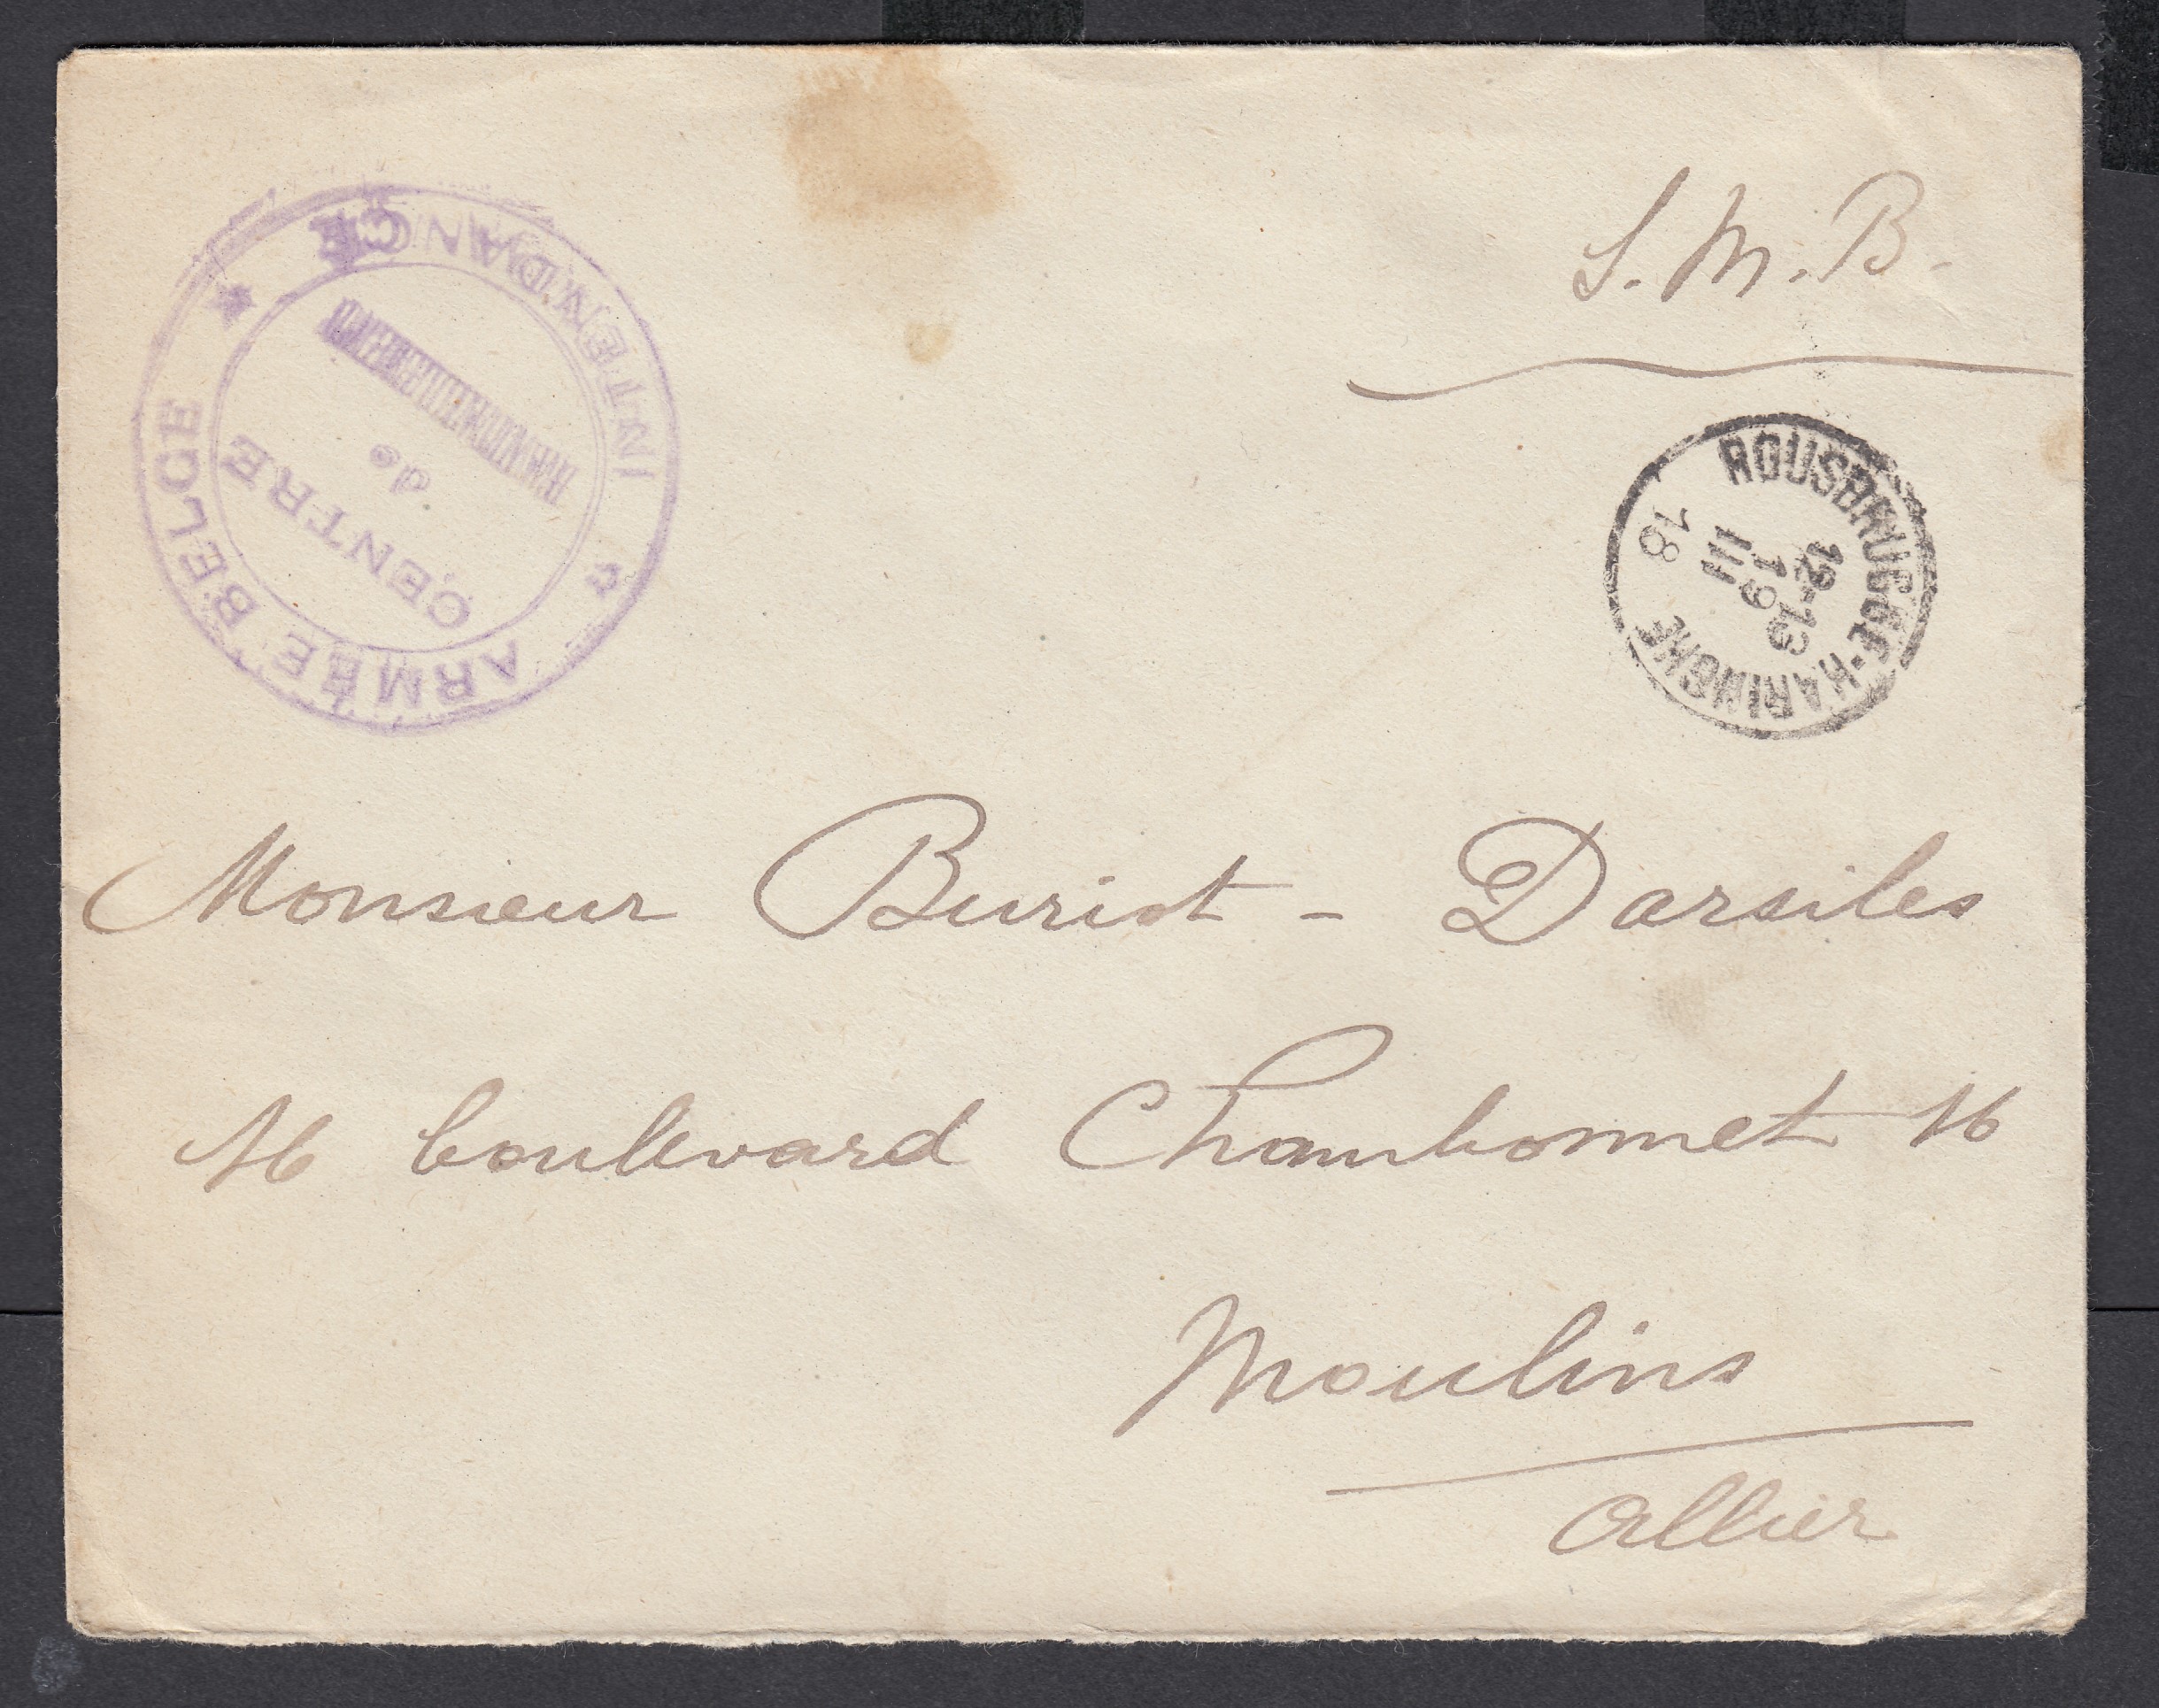 S. M. B.
ARMÉE BELGE
INTENDANCE
CENTRE
de
ROUSBRUGGE-HARINGHE
12-13
19
III
18
Monsieur Buriot - Darsiles
16 boulevard Chambonnet 16
Moulins
Allier